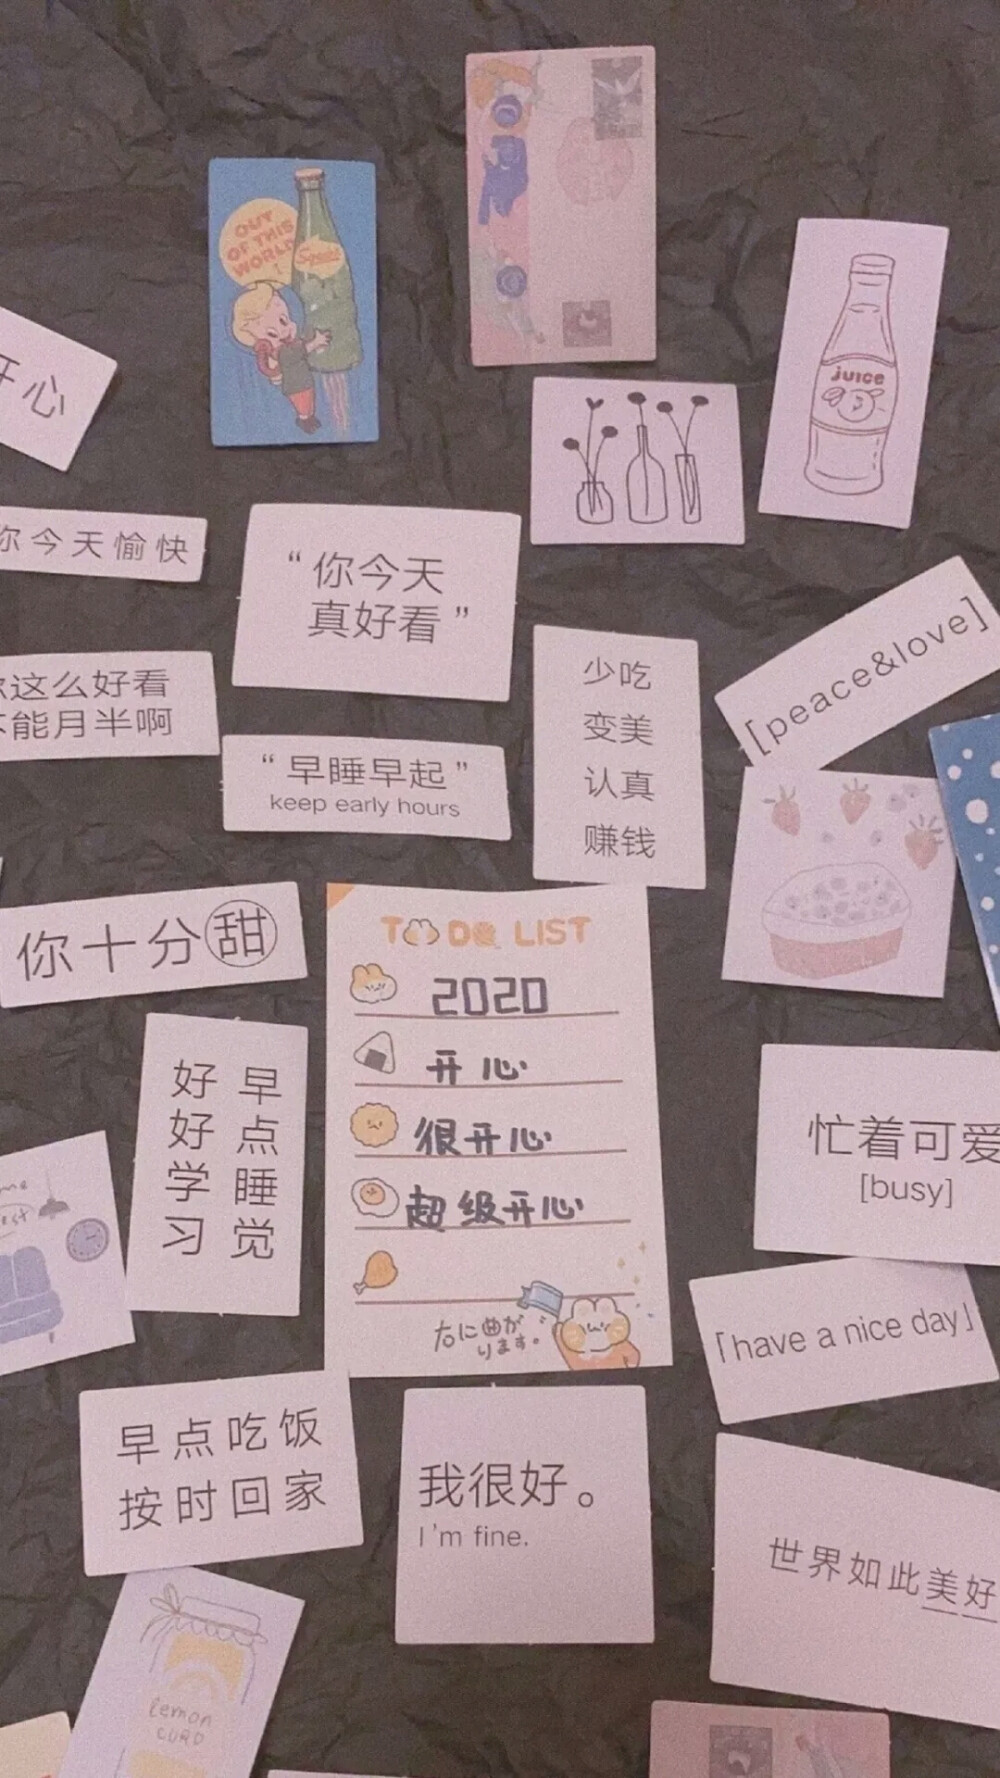 OUT
OF THIS
WORLD
juice
开心
你今天愉快
“你今天
真好看”
这么好看
能月半啊
“早睡早起”
keep early hours
少吃
变美
认真
赚钱
[peace&love]
你十分甜
TO DO LIST
2020
开心
很开心
超级开心
右に曲が
ります。
早点睡觉
好好学习
忙着可爱
[busy]
「have a nice day」
早点吃饭
按时回家
我很好。
I'm fine.
世界如此美好
lemon
CURD